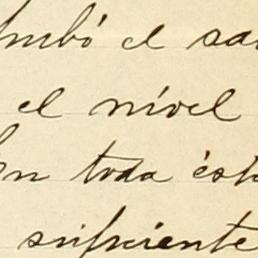 el
el nivel
en toda ésta
suficiente